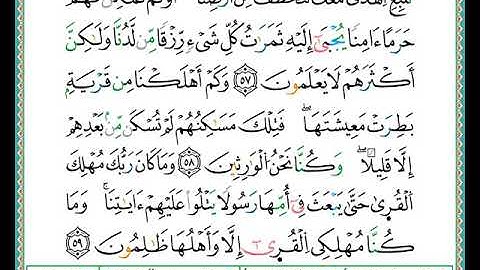 نَتَّبِعِ الْهُدَىٰ مَعَكَ نُتَخَطَّفْ مِنْ أَرْضِنَا ۚ أَوَلَمْ نُمَكِّن لَّهُمْ
حَرَمًا ءَامِنًا يُجْبَىٰٓ إِلَيْهِ ثَمَرَٰتُ كُلِّ شَىْءٍ رِّزْقًا مِّن لَّدُنَّا وَلَٰكِنَّ
أَكْثَرَهُمْ لَا يَعْلَمُونَ ۝٥٧ وَكَمْ أَهْلَكْنَا مِن قَرْيَةٍۭ
بَطِرَتْ مَعِيشَتَهَا ۖ فَتِلْكَ مَسَٰكِنُهُمْ لَمْ تُسْكَن مِّنۢ بَعْدِهِمْ
إِلَّا قَلِيلًا ۖ وَكُنَّا نَحْنُ الْوَٰرِثِينَ ۝٥٨ وَمَا كَانَ رَبُّكَ مُهْلِكَ
الْقُرَىٰ حَتَّىٰ يَبْعَثَ فِىٓ أُمِّهَا رَسُولًا يَتْلُوا۟ عَلَيْهِمْ ءَايَٰتِنَا ۚ وَمَا
كُنَّا مُهْلِكِى الْقُرَىٰٓ إِلَّا وَأَهْلُهَا ظَٰلِمُونَ ۝٥٩